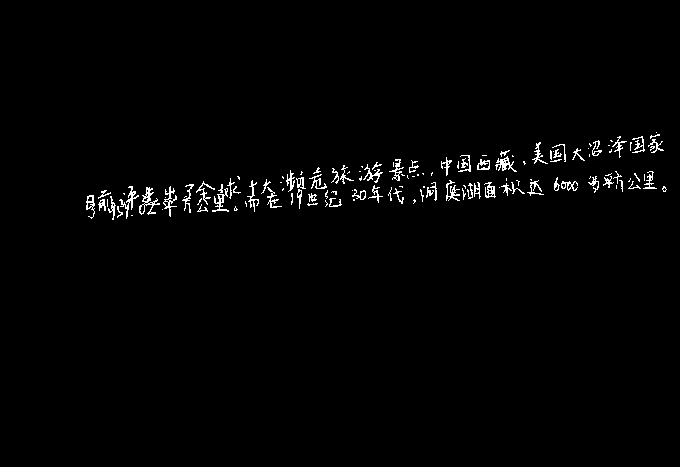 目前评选出了全球十大濒危旅游景点,中国西藏、美国大沼泽国家
平方公里。而在19世纪30年代,洞庭湖面积达6000多平方公里。